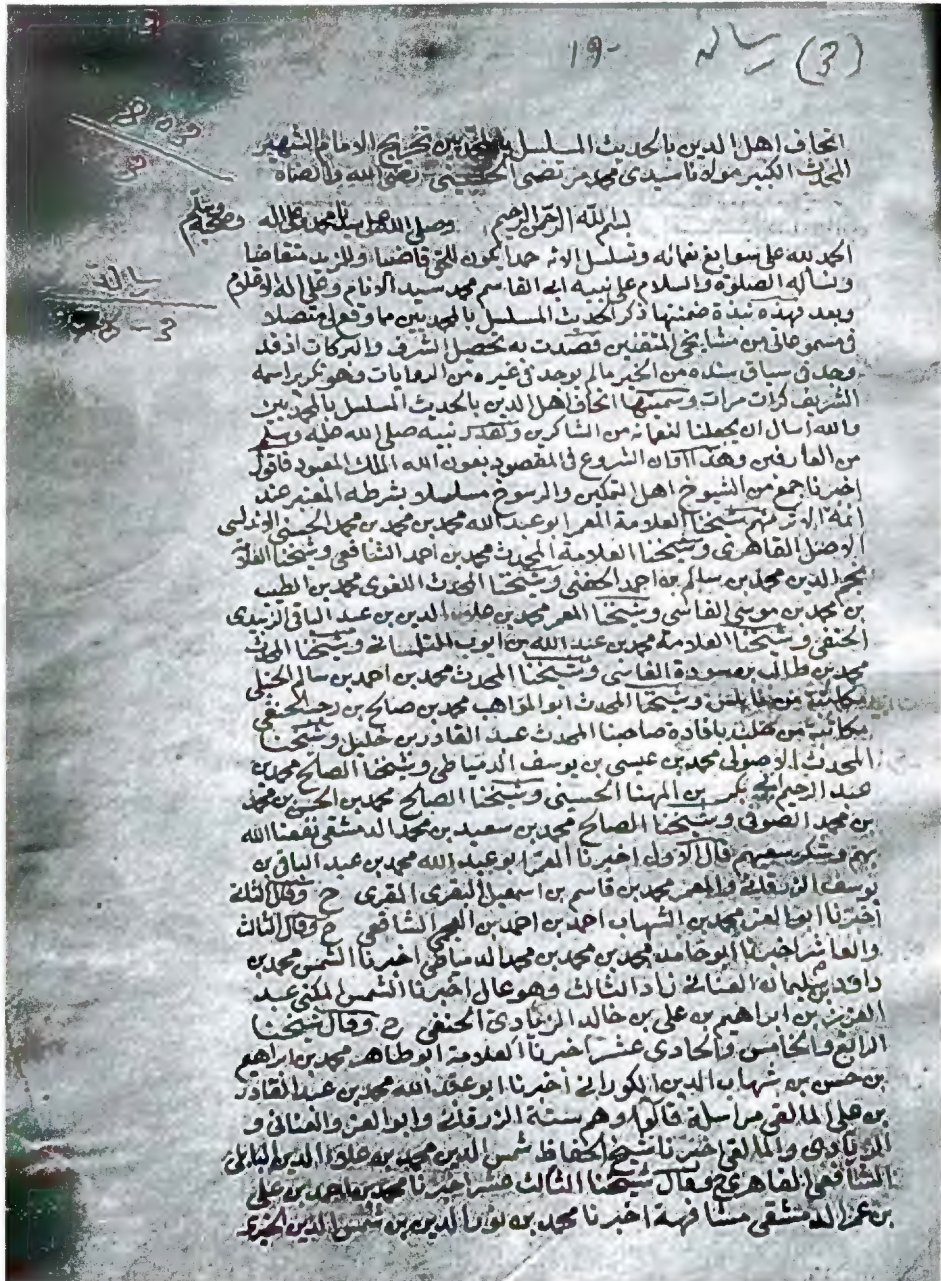 (3) رساله ١٩٠
اتحاف اهل الدين بالحديث المسلسل بالمحمدين تخريج الامام الشهير
المحدث الكبير مولانا سيدى محمد مرتضى الحسينى رضى الله وارضاه
بسم الله الرحمن الرحيم وصلى الله على سيدنا محمد وعلى اله وصحبه وسلم
الحمد لله على سوابغ نعمائه وتسلسل الائه حمدا يكون للحق قاضيا وللمزيد متقاضيا
ونساله الصلوة والسلام على نبيه ابى القاسم محمد سيد الانام وعلى اله الاعلام
وبعد فهذه نبذة ضمنتها ذكر الحديث المسلسل بالمحمدين ما وقع لى متصلا
فى مسموعاتى من مشايخى المتقنين قصدت به تحصيل الشرف والبركات اذ قد
وجد فى سياق سنده من الخير مالم يوجد فى غيره من الروايات وهو تكرير اسمه
الشريف كرات مرات وسميتها اتحاف اهل الدين بالحديث المسلسل بالمحمدين
والله اسال ان يجعلنا لنعمائه من الشاكرين ولقدر نبيه صلى الله عليه وسلم
من العارفين وهذا اوان الشروع فى المقصود بعون الله الملك المعبود فاقول
اخبرنا جمع من الشيوخ اهل التمكين والرسوخ مسلسلا بشرطه المعتبر عند
ائمة الاثر منهم شيخنا العلامة المعمر ابو عبد الله محمد بن محمد بن محمد الحسنى الاندلسى
الاصل القاهرى وشيخنا العلامة المحدث محمد بن احمد الشافعى وشيخنا العلامة
نجم الدين محمد بن سالم بن احمد الحفنى وشيخنا المحدث اللغوى محمد بن الطيب
بن محمد بن موسى الفاسى وشيخنا المعمر محمد بن علاء الدين بن عبد الباقى الزبيدى
الحنفى وشيخنا العلامة محمد بن عبد الله بن ايوب التلمسانى وشيخنا المحدث
محمد بن طالب بن سودة الفاسى وشيخنا المحدث محمد بن احمد بن سالم الحنبلى
مكاتبة من نابلس وشيخنا المحدث ابو المواهب محمد بن صالح بن رجب الحنفى
مكاتبة من بافادة صاحبنا المحدث عبد القادر بن خليل وشيخنا
المحدث الاصولى محمد بن عيسى بن يوسف الدمياطى وشيخنا الصالح محمد بن
عبد الرحيم بن المهنا الحسينى وشيخنا الصالح محمد بن الحسن بن محمد
بن محمد الصوفى وشيخنا الصالح محمد بن سعيد بن محمد الدمشقى نفعنا الله
بهم وشكر سعيهم قال الاول اخبرنا المعمر ابو عبد الله محمد بن عبد الباقى بن
يوسف الزرقانى والمعمر محمد بن قاسم بن اسمعيل البقرى المقرى ح وقال الثانى
اخبرنا ابو العز محمد بن الشهاب احمد بن احمد بن العجمى الشافعى ح وقال الثالث
والعاشر اخبرنا ابو حامد محمد بن محمد بن محمد الدمياطى اخبرنا الشمس محمد بن
داود بن سليمان العنانى زاد الثالث وهو عال اخبرنا الشمس المكنى عبد
العزيز بن ابراهيم بن على بن خالد الزيادى الحنفى ح وقال شيخنا
الرابع والخامس والحادى عشر اخبرنا العلامة ابو طاهر محمد بن ابراهيم
بن حسن بن شهاب الدين الكورانى اخبرنا ابو عبد الله محمد بن عبد القادر
بن على المالقى مراسلة قالوا وهم ستة الزرقانى وابو العز والعنانى و
الزيادى والمالقى اخبرنا شيخ الحفاظ شمس الدين محمد بن علاء الدين البابلى
الشافعى القاهرى ح وقال شيخنا الثالث عشر اخبرنا محمد بن احمد بن على
بن عمر الدمشقى مشافهة اخبرنا محمد بن نور الدين بن شمس الدين الجزرى